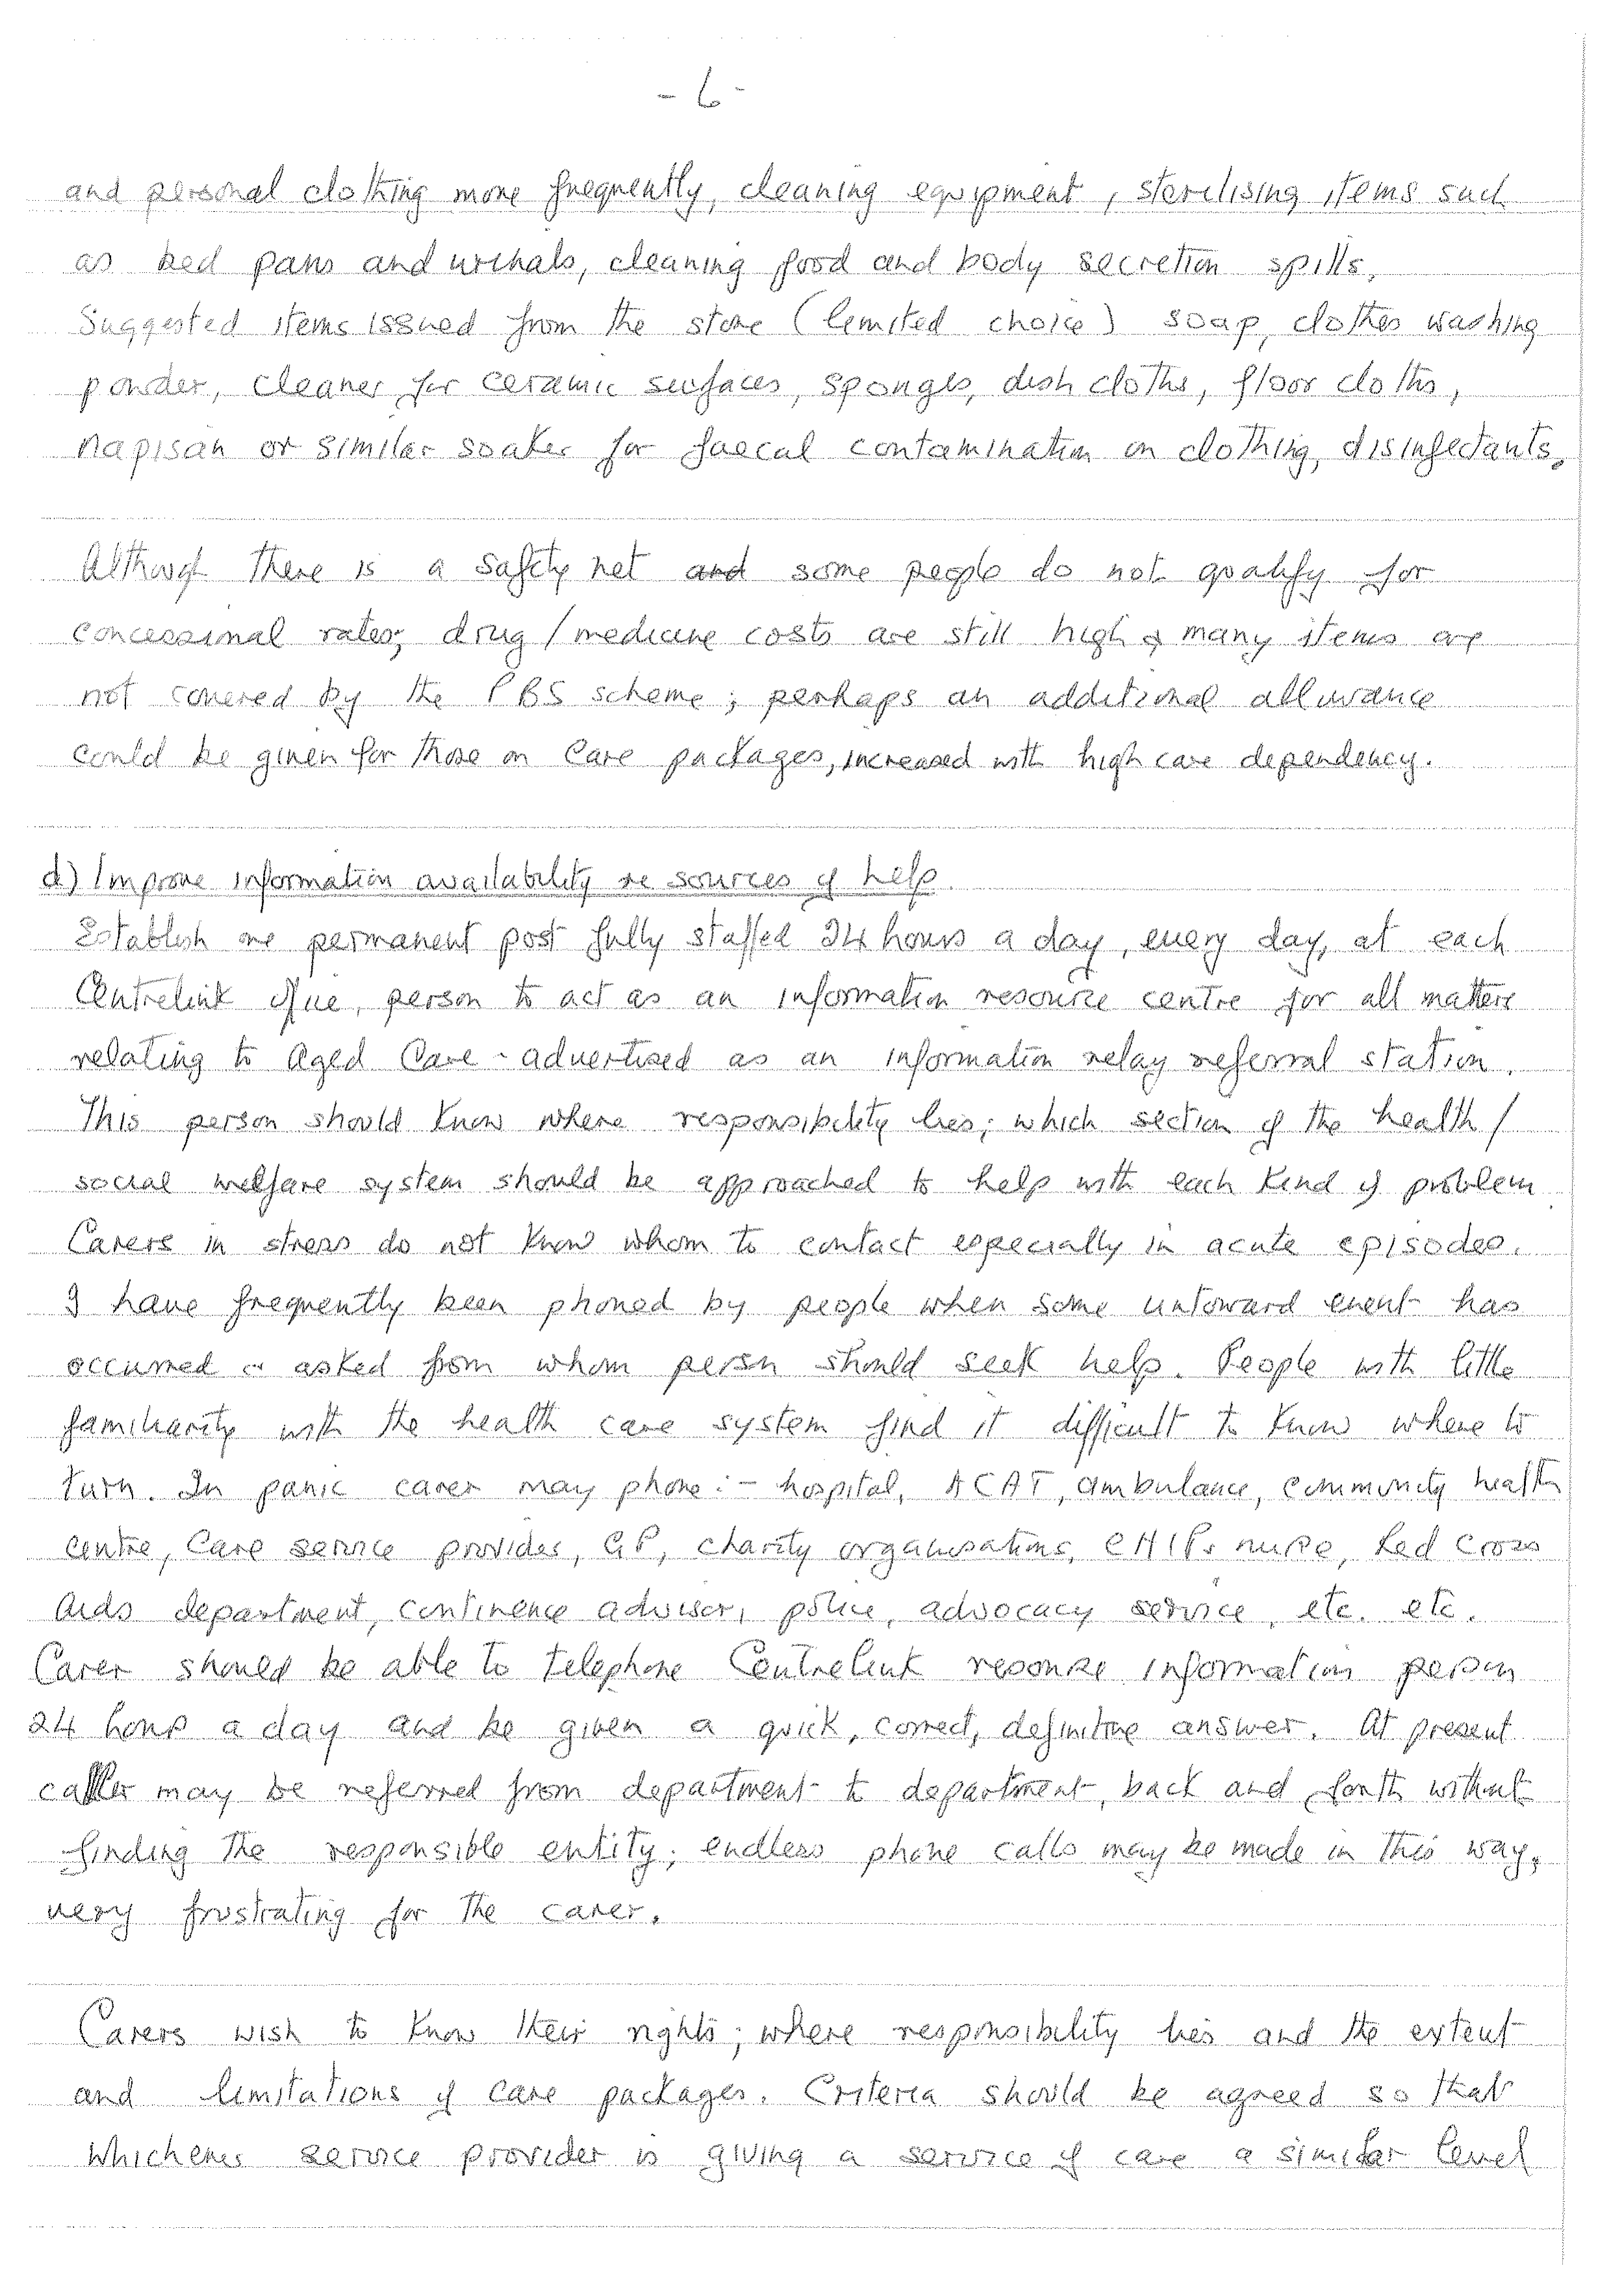 - 6 -
and personal clothing more frequently, cleaning equipment, sterilising items such
as bed pans and urinals, cleaning food and body secretion spills.
Suggested items issued from the store (limited choice) soap, clothes washing
powder, cleaner for ceramic surfaces, sponges, dish cloths, floor cloths,
napisan or similar soaker for faecal contamination on clothing, disinfectants.
Although there is a safety net and some people do not qualify for
concessional rates; drug / medicine costs are still high & many items are
not covered by the PBS scheme; perhaps an additional allowance
could be given for those on Care packages, increased with high care dependency.
d) Improve information availability re sources of help.
Establish one permanent post fully staffed 24 hours a day, every day, at each
Centrelink office, person to act as an information resource centre for all matters
relating to Aged Care - advertised as an information relay referral station.
This person should know where responsibility lies; which section of the health /
social welfare system should be approached to help with each kind of problem
Carers in stress do not know whom to contact especially in acute episodes.
I have frequently been phoned by people when some untoward event has
occurred & asked from whom person should seek help. People with little
familiarity with the health care system find it difficult to know where to
turn. In panic carer may phone :- hospital, ACAT, ambulance, community health
centre, Care service provider, GP, charity organisations, nurse, Red Cross
Aids department, continence advisor, police, advocacy service, etc. etc.
Carer should be able to telephone Centrelink information person
24 hours a day and be given a quick, correct, definitive answer. At present
caller may be referred from department to department, back and forth without
finding the responsible entity; endless phone calls may be made in this way,
very frustrating for the carer.
Carers wish to know their rights; where responsibility lies and the extent
and limitations of care packages. Criteria should be agreed so that
whichever service provider is giving a service of care a similar level